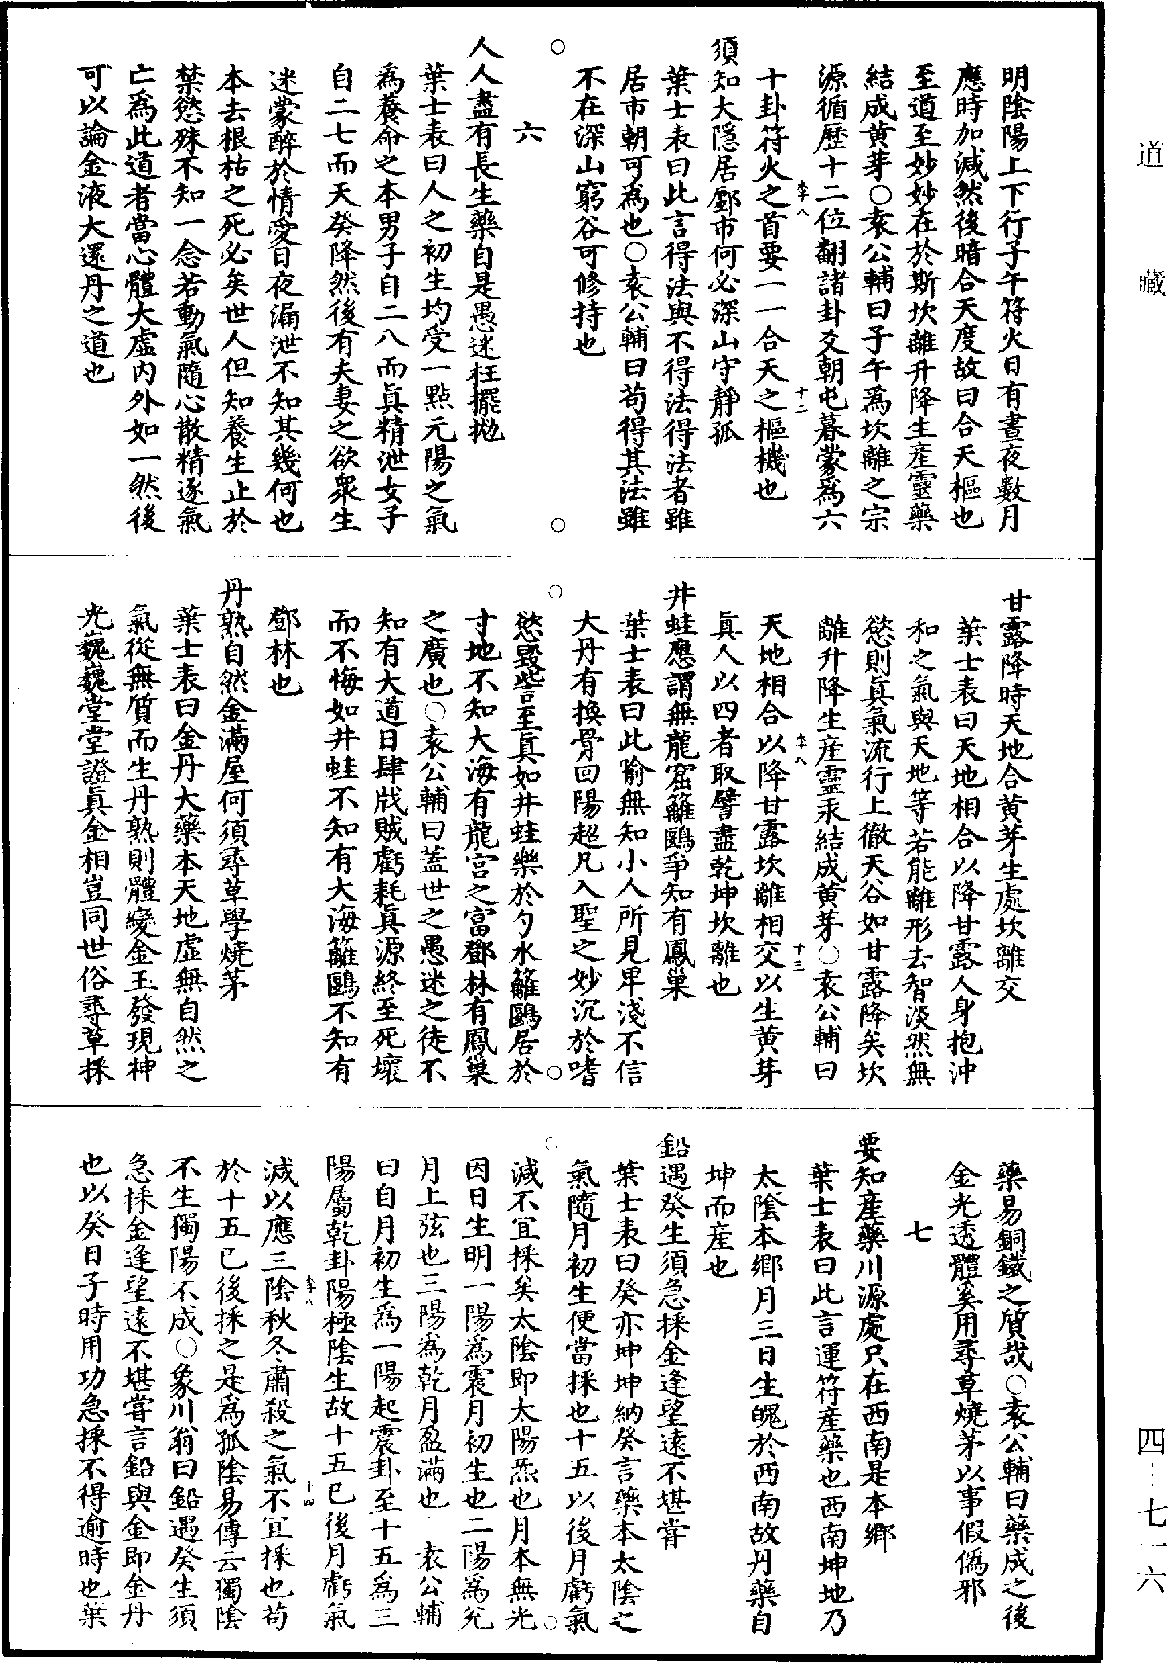 道藏
四—七一六
明陰陽上下行子午符火日有晝夜數月
應時加減然後暗合天度故曰合天樞也
至道至妙妙在於斯坎離升降生產靈藥
結成黃芽○袁公輔曰子午為坎離之宗
源循歷十二位翻諸卦爻朝屯暮蒙為六
十卦符火之首要一一合天之樞機也
李八
十二
須知大隱居鄽市何必深山守靜孤
葉士表曰此言得法與不得法得法者雖
居市朝可為也○袁公輔曰苟得其法雖
不在深山窮谷可修持也
○
○
六
人人盡有長生藥自是愚迷枉擺拋
葉士表曰人之初生均受一點元陽之氣
為養命之本男子自二八而真精泄女子
自二七而天癸降然後有夫妻之欲眾生
迷蒙醉於情愛日夜漏泄不知其幾何也
本去根枯之死必矣世人但知養生止於
禁慾殊不知一念若動氣隨心散精逐氣
亡為此道者當心體大虛內外如一然後
可以論金液大還丹之道也
甘露降時天地合黃芽生處坎離交
葉士表曰天地相合以降甘露人身抱沖
和之氣與天地等若能離形去智淡然無
慾則真氣流行上徹天谷如甘露降矣坎
離升降生產靈汞結成黃芽○袁公輔曰
天地相合以降甘露坎離相交以生黃芽
李八
十三
真人以四者取譬盡乾坤坎離也
井蛙應謂無龍窟籬鷃爭知有鳳巢
葉士表曰此喻無知小人所見卑淺不信
大丹有換骨回陽超凡入聖之妙沉於嗜
○
○
慾毀訾至真如井蛙樂於勺水籬鷃居於
寸地不知大海有龍宮之富鄧林有鳳巢
之廣也○袁公輔曰蓋世之愚迷之徒不
知有大道日肆戕賊虧耗真源終至死壞
而不悔如井蛙不知有大海籬鷃不知有
鄧林也
丹熟自然金滿屋何須尋草學燒茅
葉士表曰金丹大藥本天地虛無自然之
氣從無質而生丹熟則體變金玉發現神
光巍巍堂堂證真金相豈同世俗尋草採
藥易銅鐵之質哉○袁公輔曰藥成之後
金光透體奚用尋草燒茅以事假偽邪
七
要知產藥川源處只在西南是本鄉
葉士表曰此言運符產藥也西南坤地乃
太陰本鄉月三日生魄於西南故丹藥自
坤而產也
鉛遇癸生須急採金逢望遠不堪嘗
葉士表曰癸亦坤坤納癸言藥本太陰之
氣隨月初生便當採也十五以後月虧氣
○
○
減不宜採矣太陰即太陽炁也月本無光
因日生明一陽為震月初生也二陽為兌
月上弦也三陽為乾月盈滿也　袁公輔
曰自月初生為一陽起震卦至十五為三
陽屬乾卦陽極陰生故十五已後月虧氣
減以應三陰秋冬肅殺之氣不宜採也苟
李八
十四
於十五已後採之是為孤陰易傳云獨陰
不生獨陽不成○象川翁曰鉛遇癸生須
急採金逢望遠不堪嘗言鉛與金即金丹
也以癸日子時用功急採不得逾時也葉